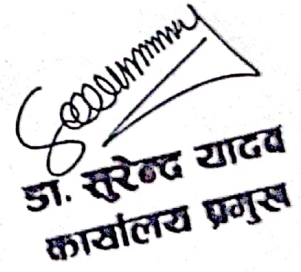 डा. सुरेन्द्र यादव
कार्यालय प्रमुख